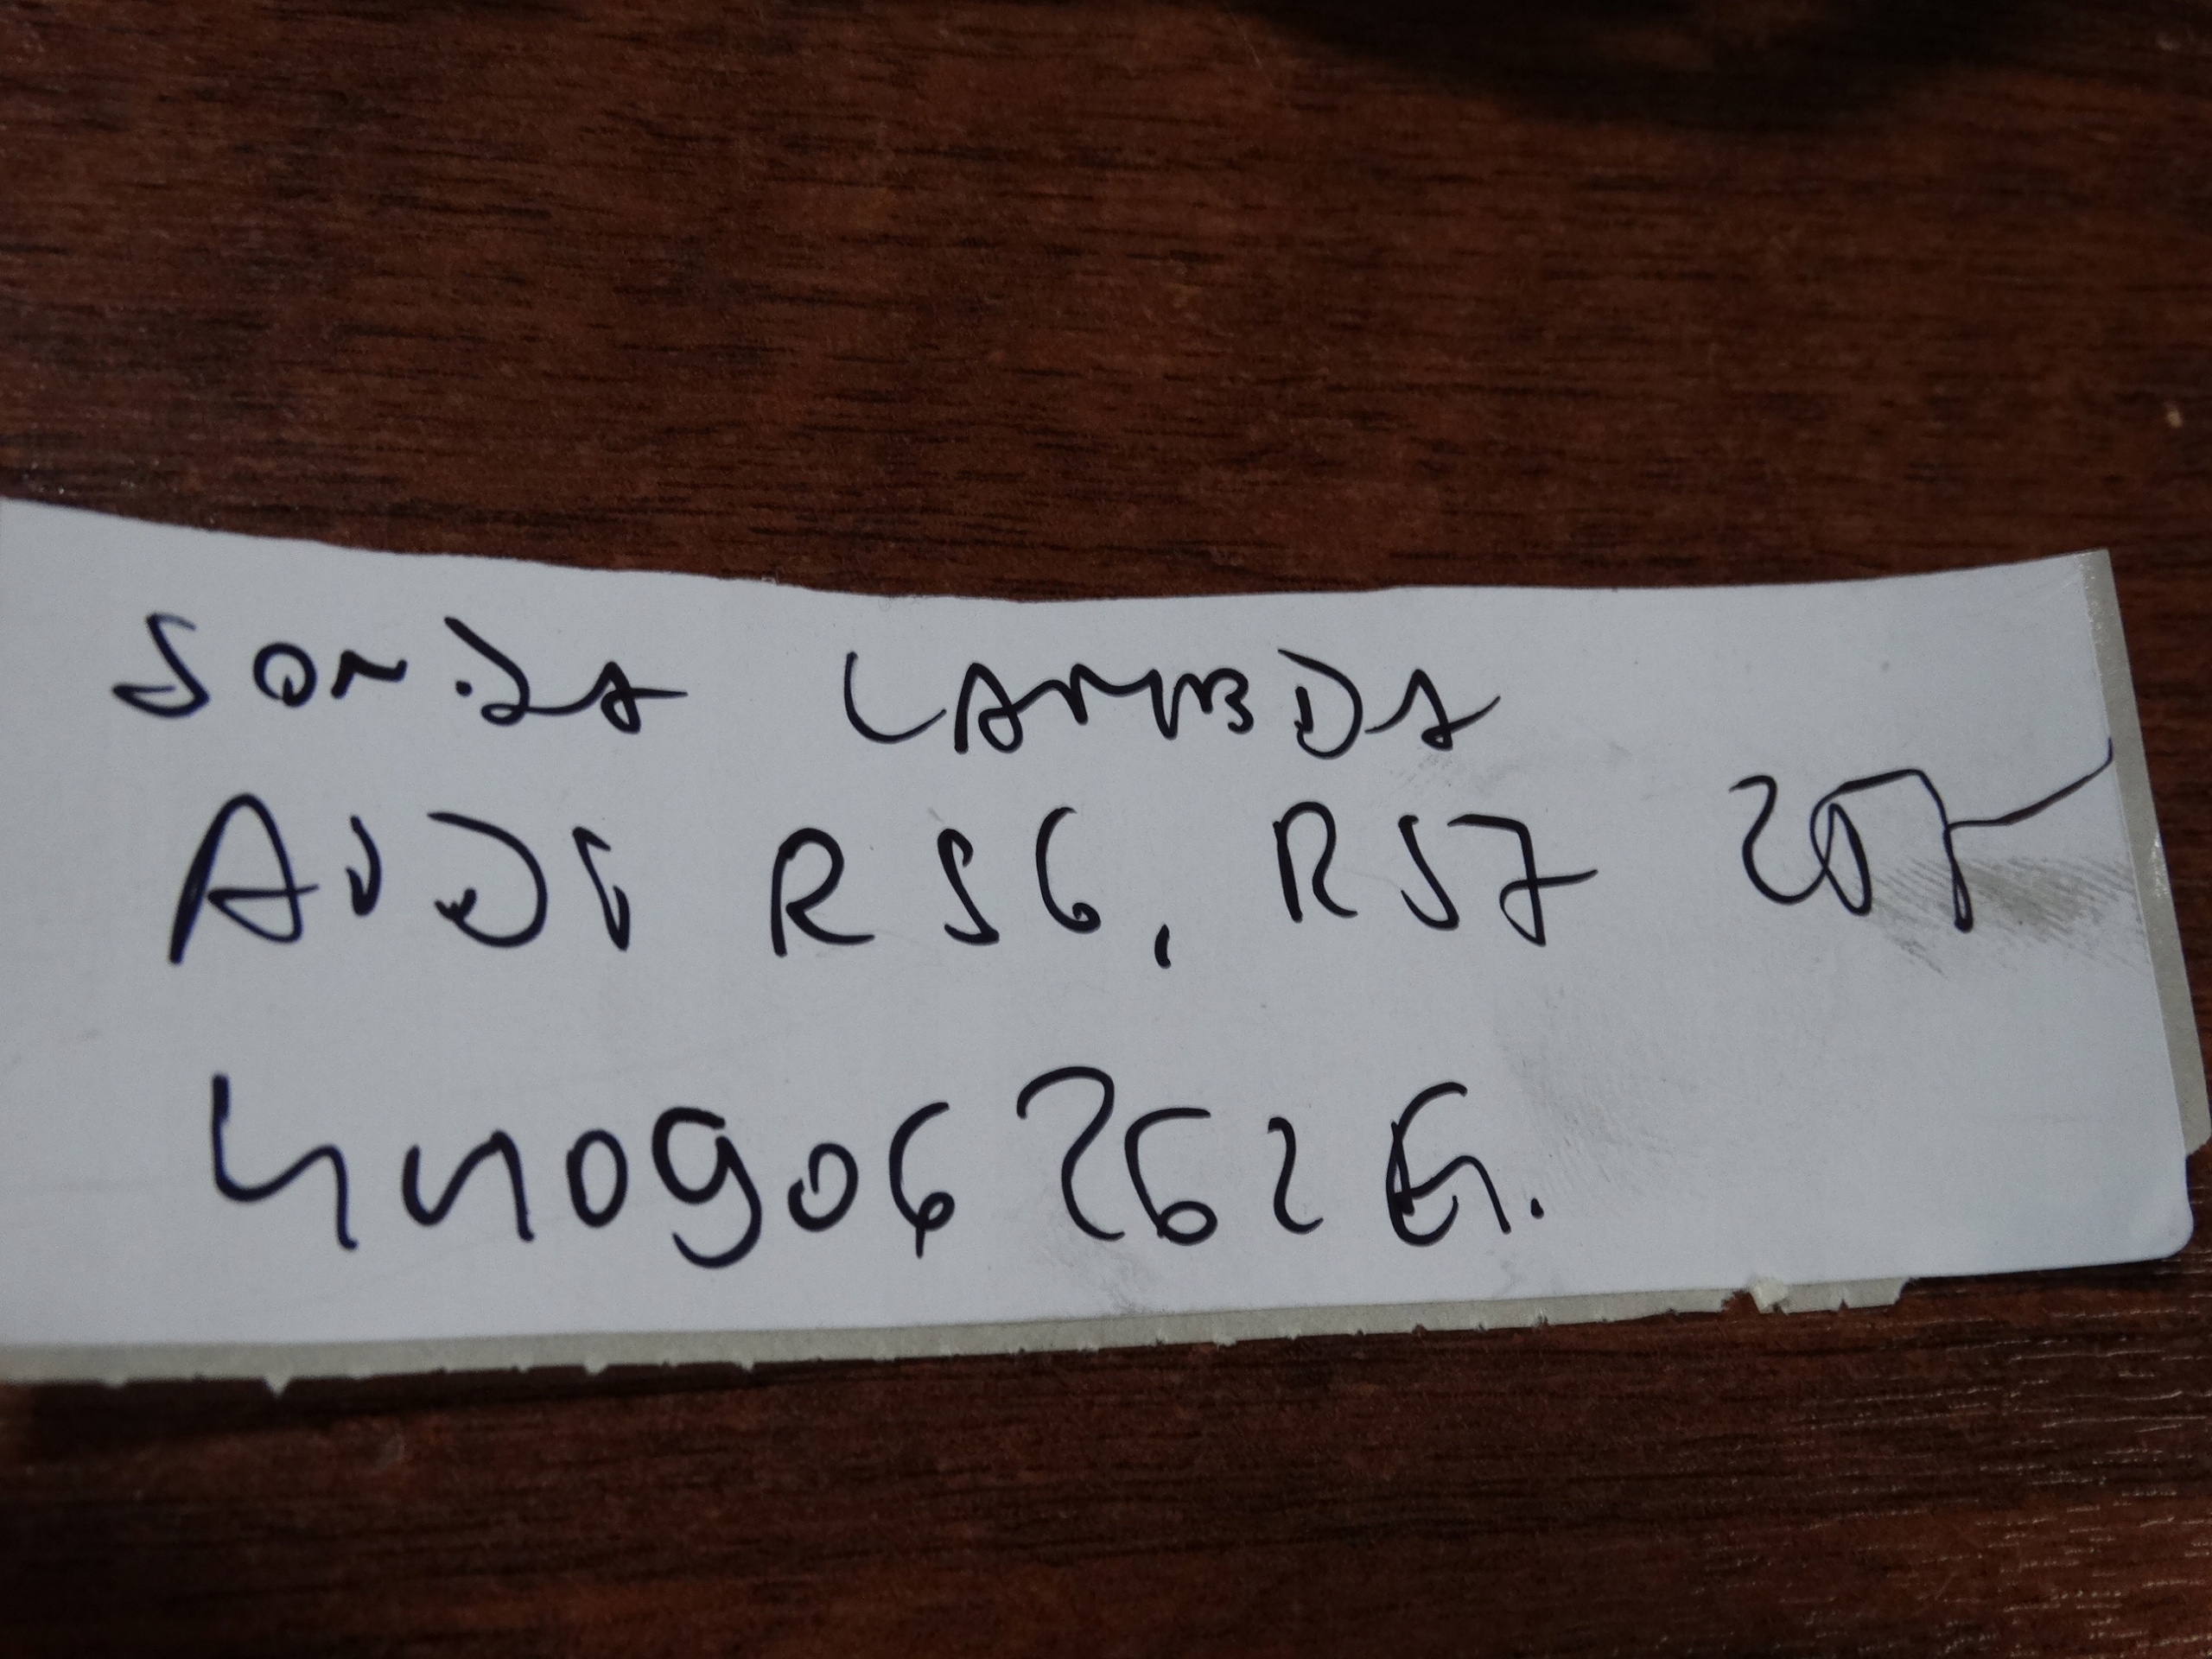 SONDA LAMBDA
AUDI RS6, RS7
4H0906262G.